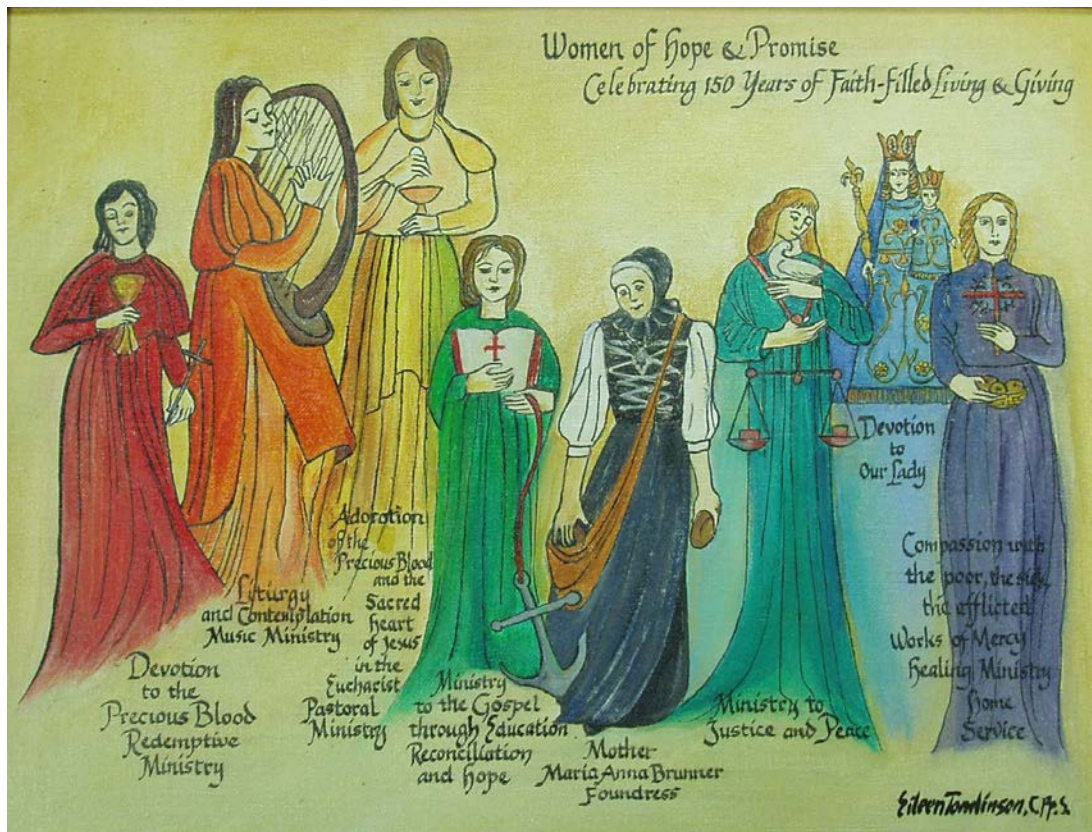 Women of Hope & Promise
Celebrating 150 Years of Faith-filled Living & Giving
Devotion
to the
Precious Blood
Redemptive
Ministry
Liturgy
and Contemplation
Music Ministry
Adoration
of the
Precious Blood
and the
Sacred
Heart
of Jesus
in the
Eucharist
Pastoral
Ministry
Ministry
to the Gospel
through Education
Reconciliation
and Hope
Mother
Maria Anna Brunner
Foundress
Ministry to
Justice and Peace
Devotion
to
Our Lady
Compassion with
the poor, the sick,
the afflicted
Works of Mercy
Healing Ministry
Home
Service
Eileen Tomlinson, C.PP.S.